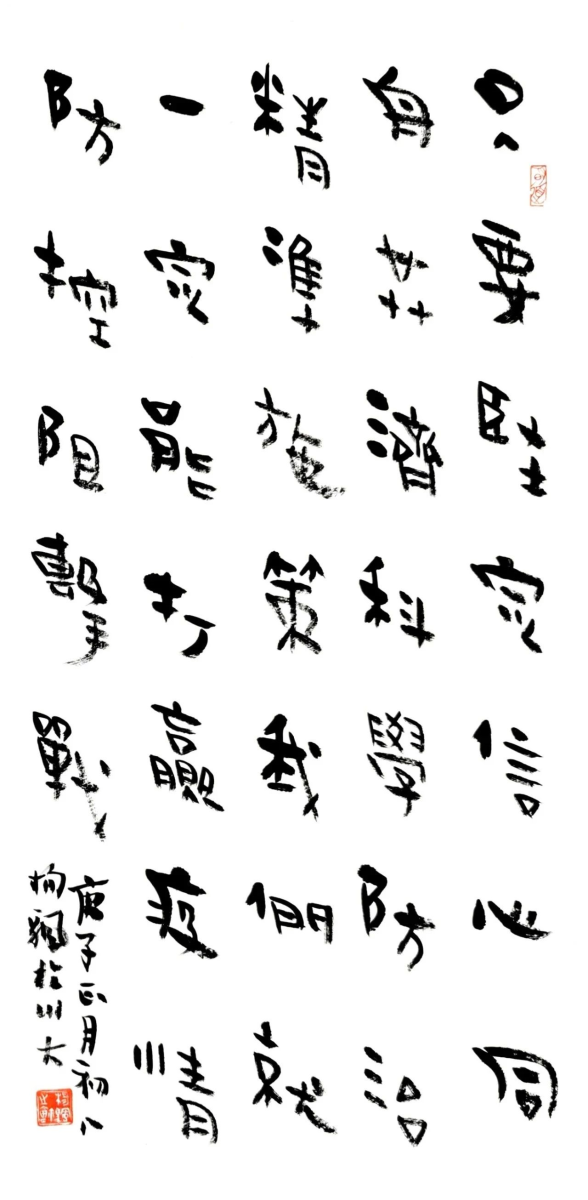 只要堅定信心同
舟共濟科學防治
精準施策我們就
一定能打贏疫情
防控阻擊戰
庚子正月初八
於川大